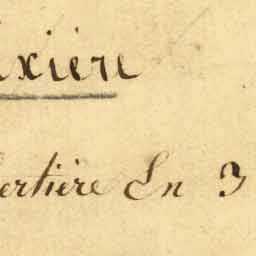 ixière
ertière En 3